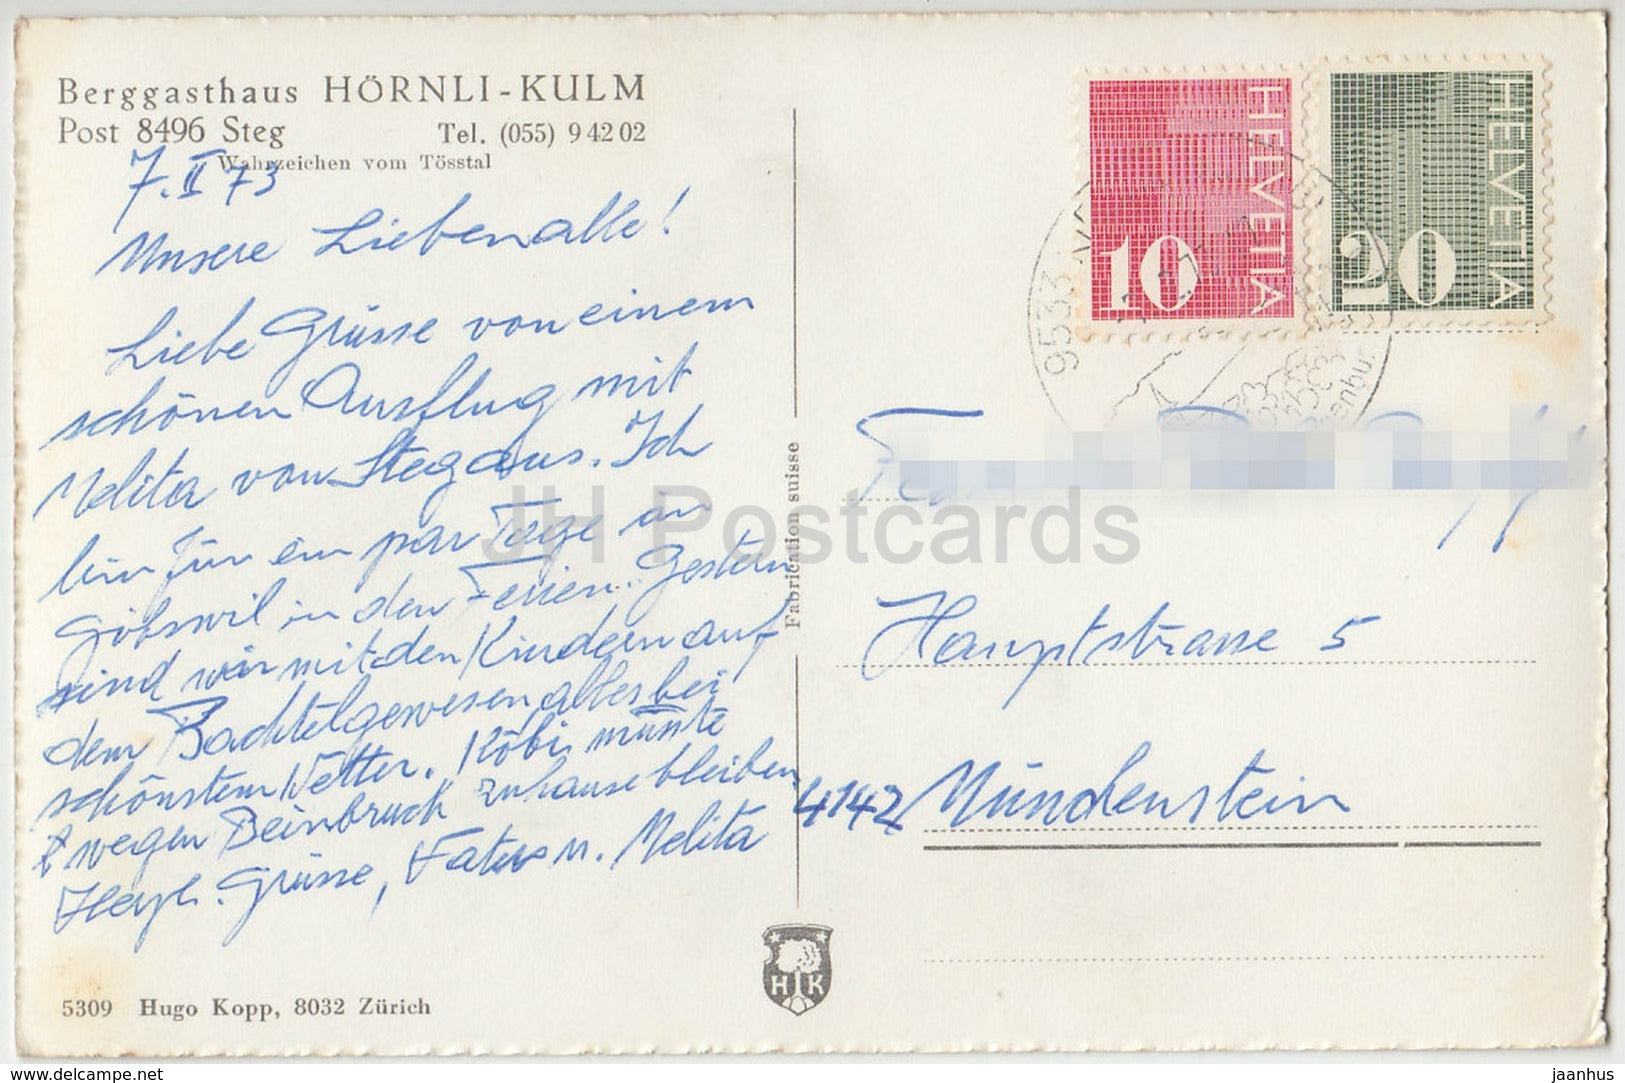 Berggasthaus HÖRNLI-KULM
Post 8496 Steg Tel. (055) 9 42 02
Wahrzeichen vom Tösstal
7. II 73
Unsere Lieben alle!
Liebe Grüsse von einem
schönen Ausflug mit
Melita von Steg aus. Ich
bin für ein par Tage in
Gibswil in den Ferien. Gestern
sind wir mit den Kindern auf
dem Bachtel gewesen alles bei
schönstem Wetter. Köbi musste
wegen Beinbruck zuhause bleiben
Herzl. Grüsse, Vater u. Melita
5309 Hugo Kopp, 8032 Zürich
Fabrication suisse
H K
HELVETIA 10
HELVETIA 20
9533
Hauptstrasse 5
4142 Münchenstein
JH Postcards
www.delcampe.net
jaanhus